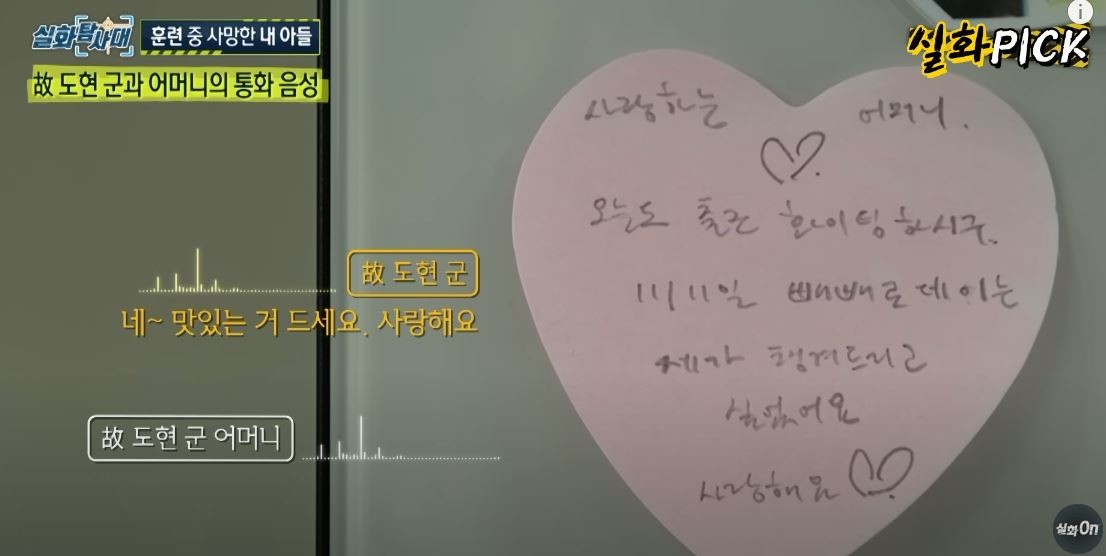 실화탐사대
훈련 중 사망한 내 아들
故 도현 군과 어머니의 통화 음성
실화PICK
i
사랑하는 어머니.
오늘도 출근 화이팅하시구.
11/11일 빼빼로데이는
제가 챙겨드리고
싶었어요
사랑해요
故 도현 군
네~ 맛있는 거 드세요. 사랑해요
故 도현 군 어머니
실화On